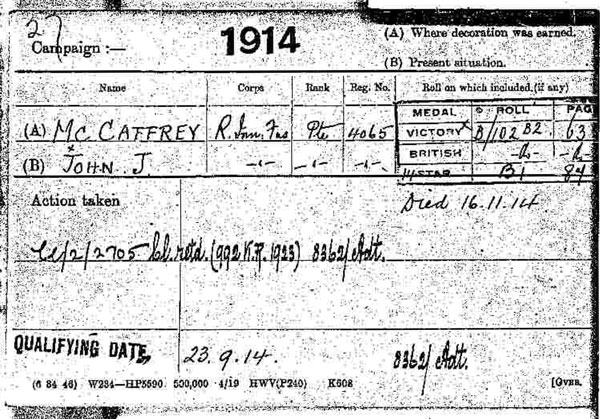 27
Campaign :— 1914
(A) Where decoration was earned.
(B) Present situation.
Name Corps Rank Reg. No. Roll on which included (if any)
MEDAL ROLL PAG
(A) MC CAFFREY R. Inn. Fus Pte 4065 VICTORY B/102 B2 63
(B) JOHN J. —"— —"— BRITISH -do- -do-
14 STAR B1 84
Action taken Died 16.11.14
/2/2705 Cl. retd. (992 K.R. 1923) 8362/Adt.
QUALIFYING DATE 23.9.14. 8362/Adt.
(6 34 46) W234—HP5590 500,000 4/19 HWV(P240) K608 [OVER.